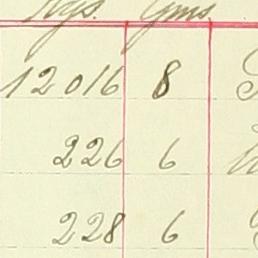 Kgs. Gms
12016 8
226 6
228 6